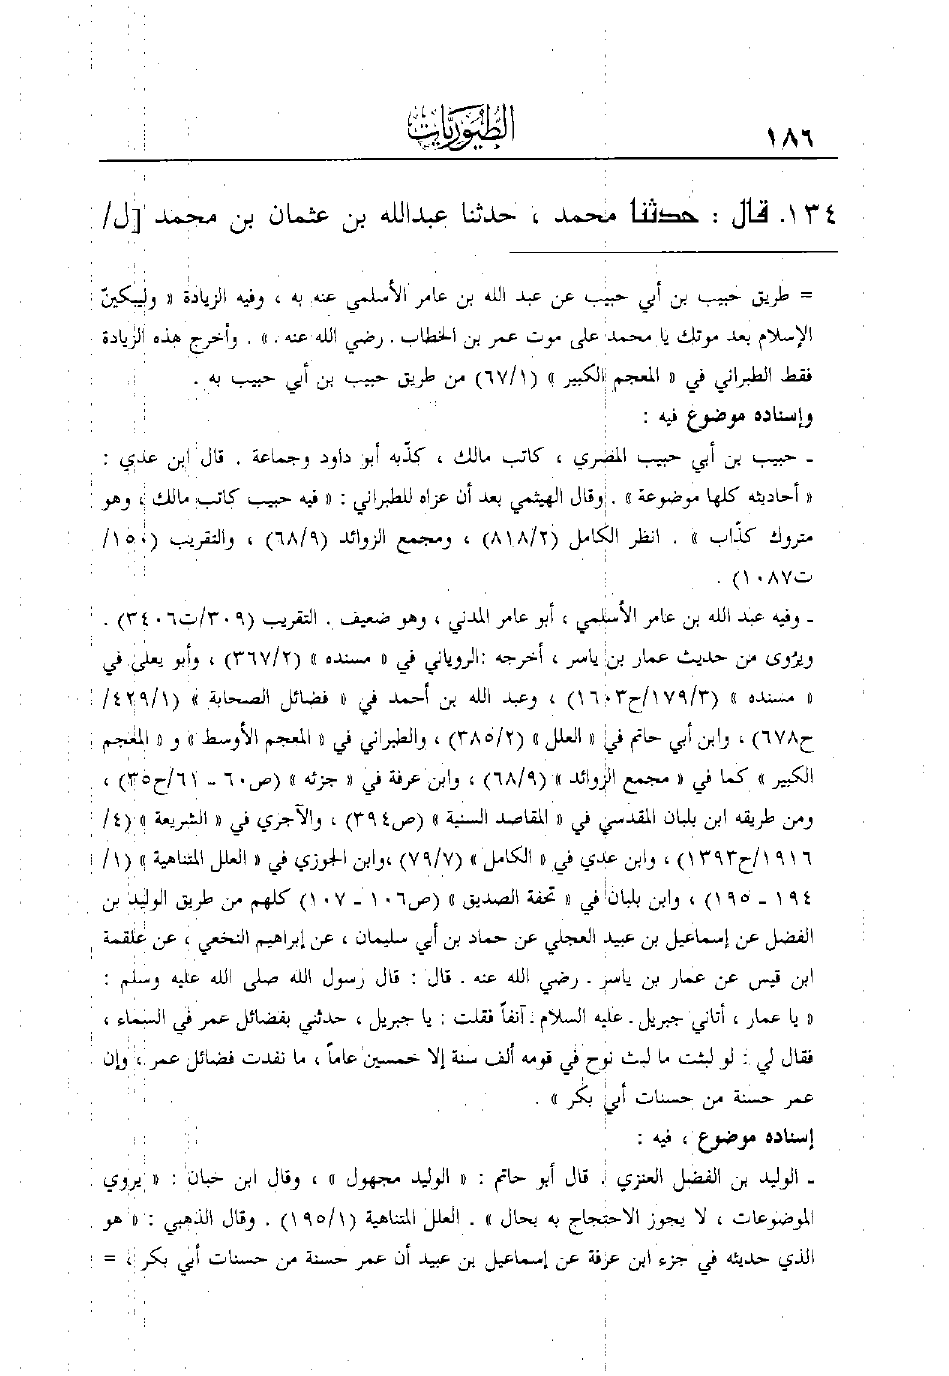 ١٨٦
الطيوريات
١٣٤. قال : حدثنا محمد ، حدثنا عبدالله بن عثمان بن محمد [ل/
= طريق حبيب بن أبي حبيب عن عبد الله بن عامر الأسلمي عنه به ، وفيه الزيادة « وليبكينّ
الإسلام بعد موتك يا محمد على موت عمر بن الخطاب . رضي الله عنه . » . وأخرج هذه الزيادة
فقط الطبراني في « المعجم الكبير » (٦٧/١) من طريق حبيب بن أبي حبيب به .
وإسناده موضوع فيه :
ـ حبيب بن أبي حبيب المصري ، كاتب مالك ، كذّبه أبو داود وجماعة . قال ابن عدي :
« أحاديثه كلها موضوعة » . وقال الهيثمي بعد أن عزاه للطبراني : « فيه حبيب كاتب مالك ، وهو
متروك كذّاب » . انظر الكامل (٨١٨/٢) ، ومجمع الزوائد (٦٨/٩) ، والتقريب (١٥٠/
ت١٠٨٧) .
ـ وفيه عبد الله بن عامر الأسلمي ، أبو عامر المدني ، وهو ضعيف . التقريب (٣٠٩/ت٣٤٠٦) .
ويرُوى من حديث عمار بن ياسر ، أخرجه :الروياني في « مسنده » (٣٦٧/٢) ، وأبو يعلى في
« مسنده » (١٧٩/٣/ح١٦٠٣) ، وعبد الله بن أحمد في « فضائل الصحابة » (٤٢٩/١/
ح٦٧٨) ، وابن أبي حاتم في « العلل » (٣٨٥/٢) ، والطبراني في « المعجم الأوسط » و « المعجم
الكبير » كما في « مجمع الزوائد » (٦٨/٩) ، وابن عرفة في « جزئه » (ص٦٠ ـ ٦١/ح٣٥) ،
ومن طريقه ابن بلبان المقدسي في « المقاصد السنية » (ص٣٩٤) ، والآجري في « الشريعة » (٤/
١٩١٦/ح١٣٩٣) ، وابن عدي في « الكامل » (٧٩/٧) ،وابن الجوزي في « العلل المتناهية » (١/
١٩٤ ـ ١٩٥) ، وابن بلبان في « تحفة الصديق » (ص١٠٦ ـ ١٠٧) كلهم من طريق الوليد بن
الفضل عن إسماعيل بن عبيد العجلي عن حماد بن أبي سليمان ، عن إبراهيم النخعي ، عن علقمة
ابن قيس عن عمار بن ياسر . رضي الله عنه . قال : قال رسول الله صلى الله عليه وسلم :
« يا عمار ، أتاني جبريل . عليه السلام . آنفاً فقلت : يا جبريل ، حدثني بفضائل عمر في السماء ،
فقال لي : لو لبثت ما لبث نوح في قومه ألف سنة إلا خمسين عاماً ، ما نفدت فضائل عمر ، وإن
عمر حسنة من حسنات أبي بكر » .
إسناده موضوع ، فيه :
ـ الوليد بن الفضل العنزي . قال أبو حاتم : « الوليد مجهول » ، وقال ابن حبان : « يروي
الموضوعات ، لا يجوز الاحتجاج به بحال » . العلل المتناهية (١٩٥/١) . وقال الذهبي : « هو
الذي حديثه في جزء ابن عرفة عن إسماعيل بن عبيد أن عمر حسنة من حسنات أبي بكر ، =